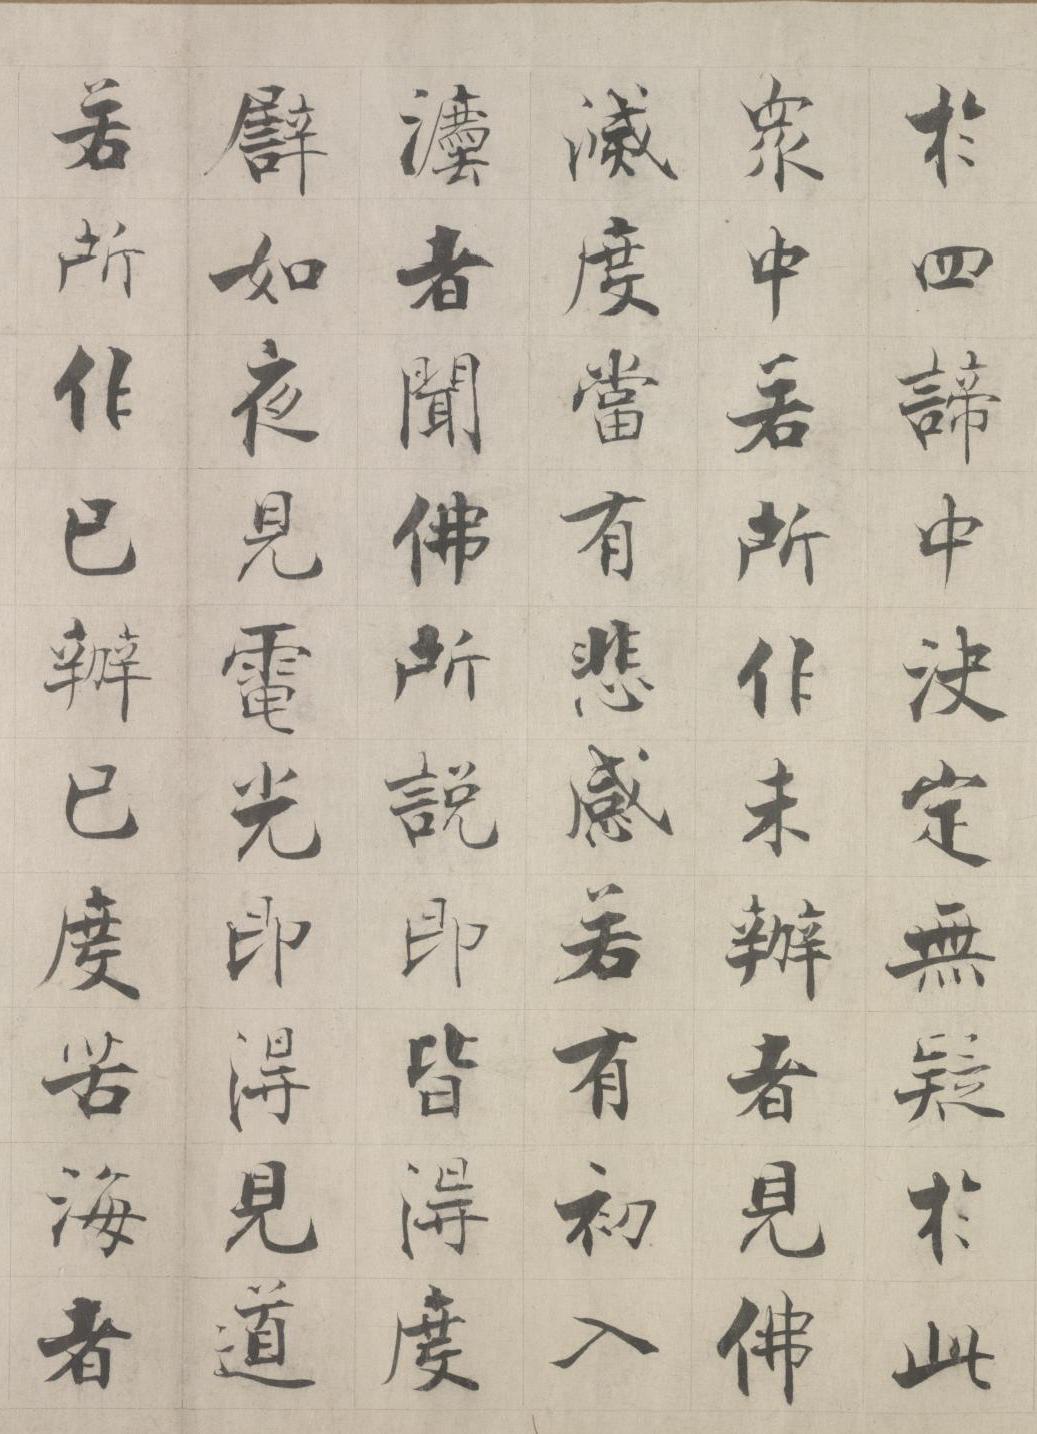 於四諦中決定無疑於此
眾中若所作未辦者見佛
滅度當有悲感若有初入
灋者聞佛所說即皆得度
譬如夜見電光即得見道
若所作已辦已度苦海者